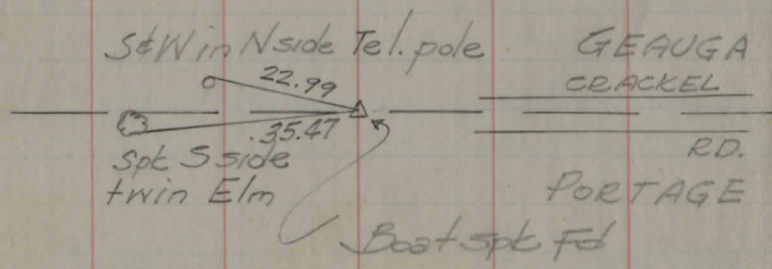 S&W in N side Tel. pole
GEAUGA
22.99
CRACKEL
35.47
RD.
Spk S side
twin Elm
PORTAGE
Boat spk Fd